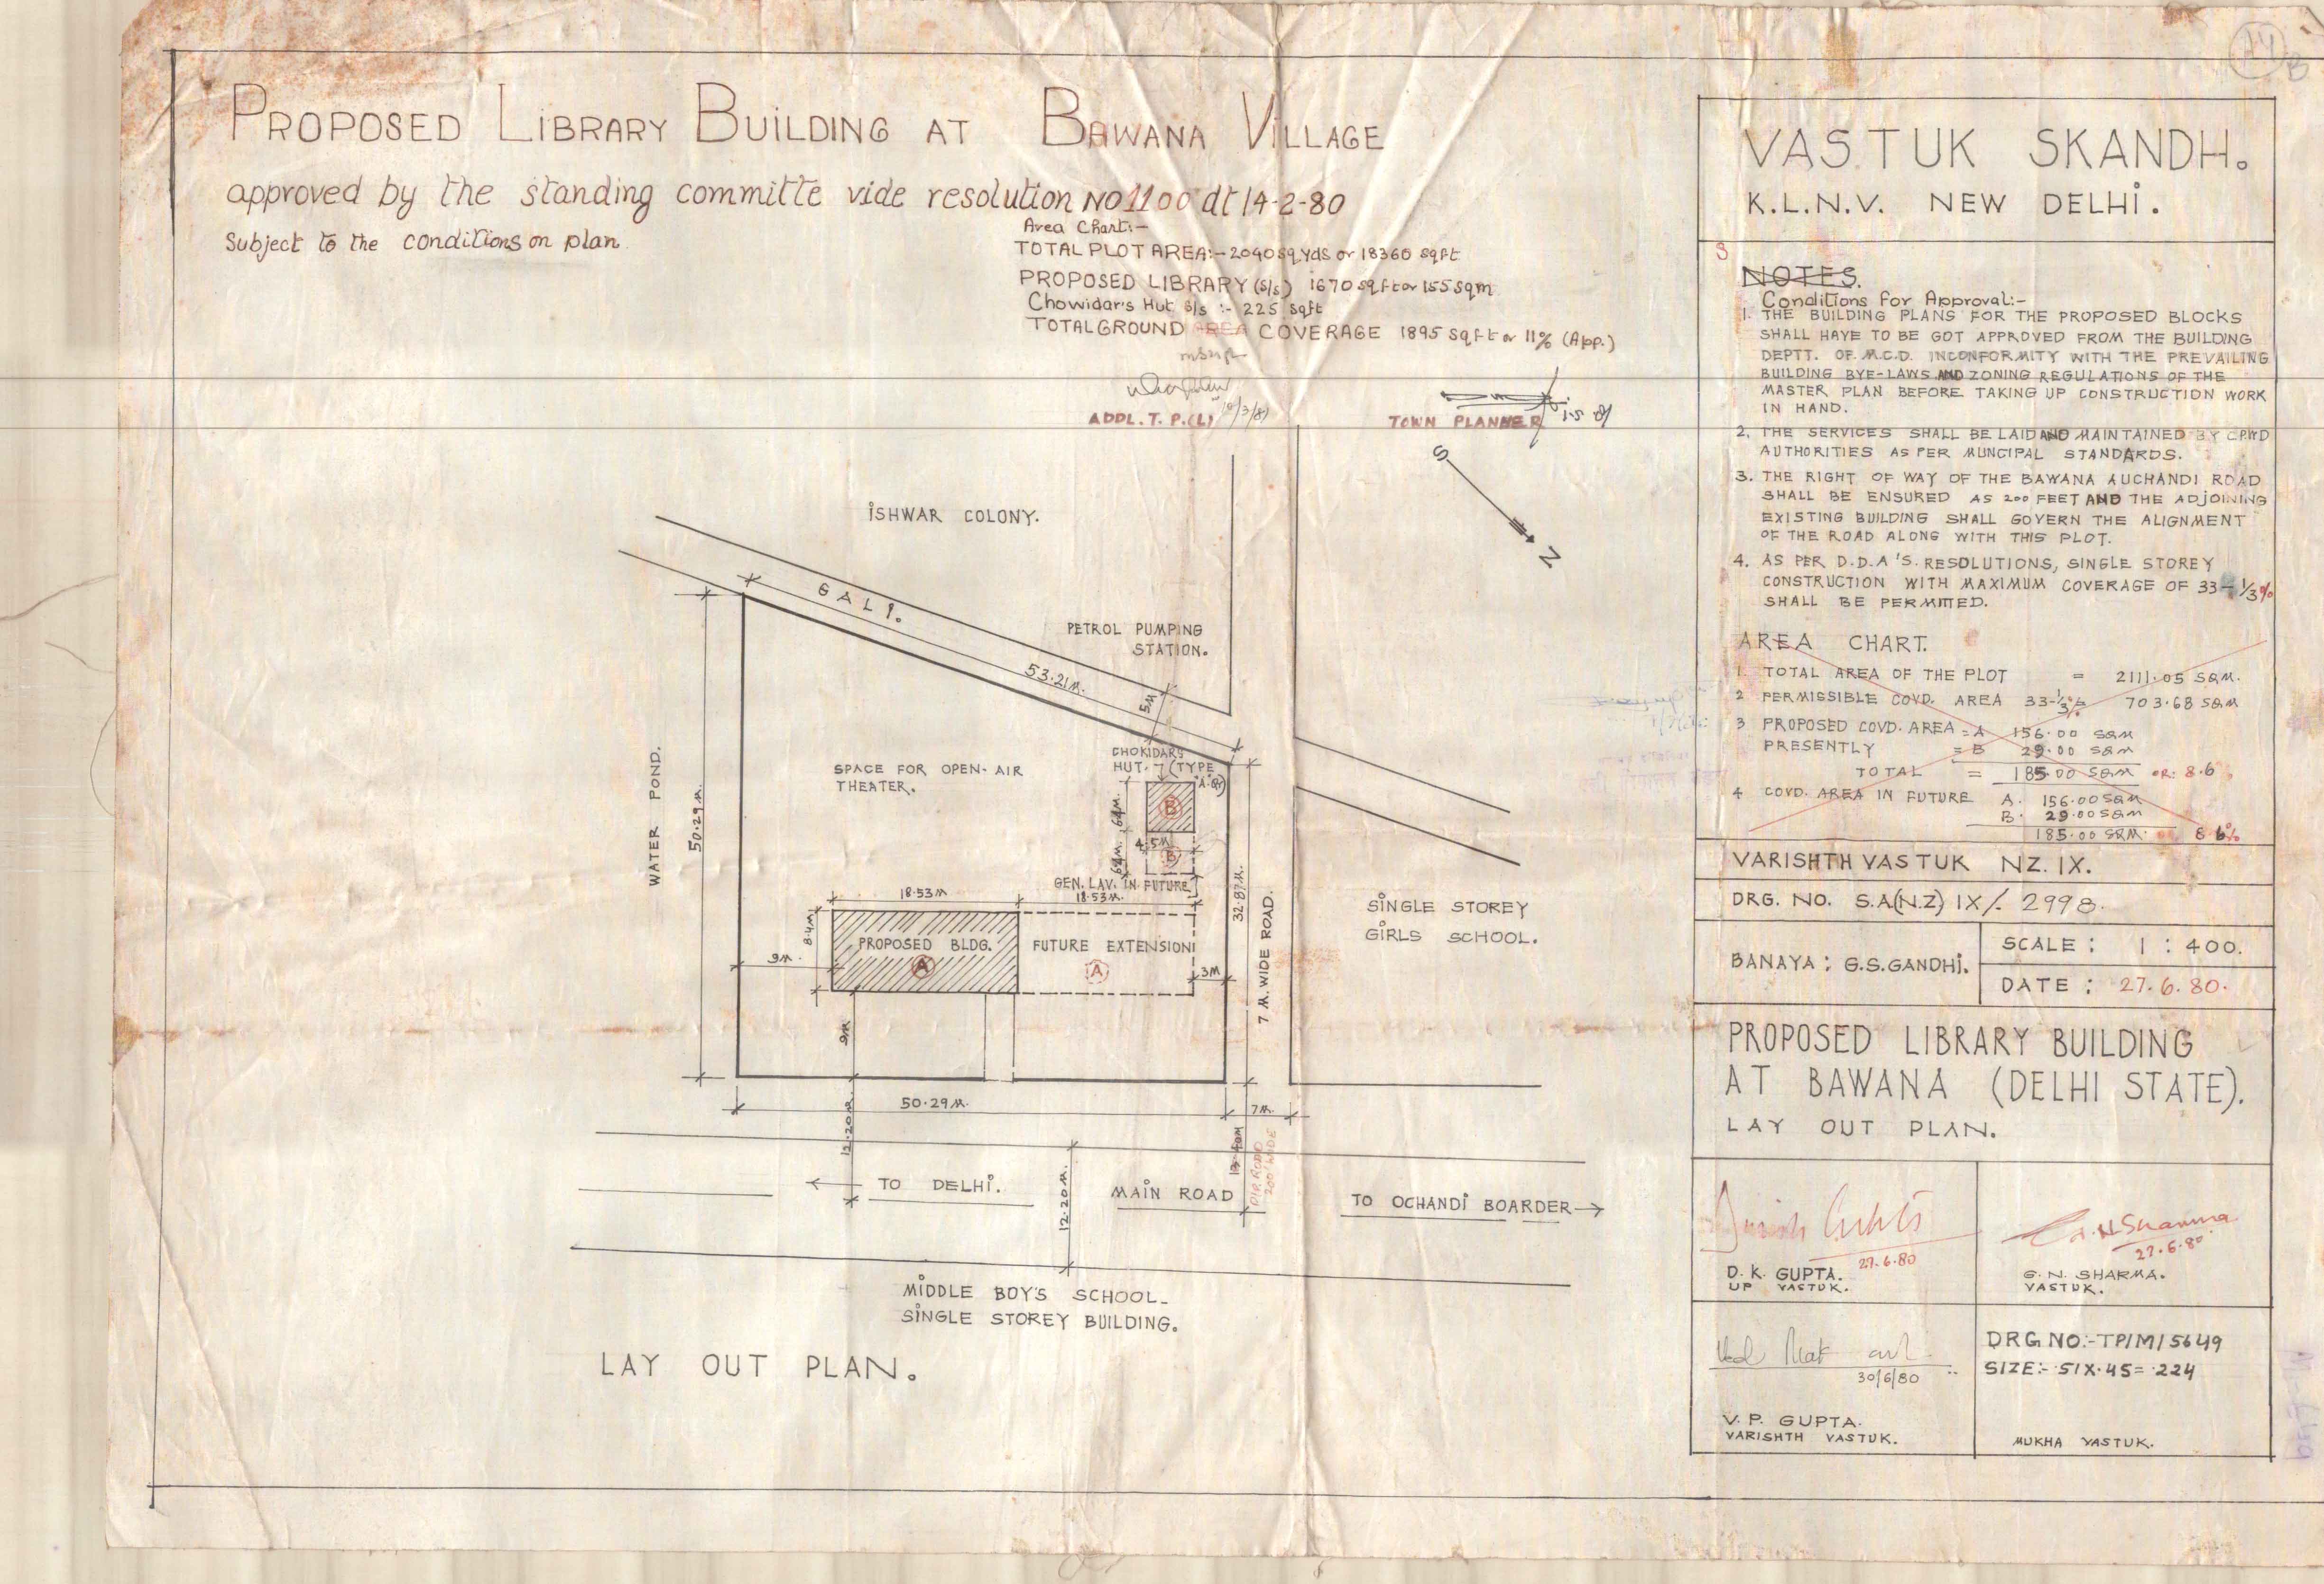 PROPOSED LIBRARY BUILDING AT BAWANA VILLAGE
approved by the standing committe vide resolution NO 1100 dt 14-2-80
Subject to the conditions on plan
Area Chart:-
TOTAL PLOT AREA:- 2040 sq.yds or 18360 sqft
PROPOSED LIBRARY (s/s) 1670 sqft or 155 sqm
Chowidar's Hut s/s :- 225 sqft
TOTAL GROUND AREA COVERAGE 1895 sqft or 11% (App.)
ADDL. T. P. (L)
TOWN PLANNER
S
N
ISHWAR COLONY.
GALI.
PETROL PUMPING
STATION.
53.21M.
5M
WATER POND.
50.29M.
SPACE FOR OPEN-AIR
THEATER.
CHOKIDARS
HUT. (TYPE
B
4.5M
B
GEN. LAV. IN FUTURE
18.53M
18.53M.
8.4M
PROPOSED BLDG.
A
FUTURE EXTENSION
A
9M.
3M
32.87M.
7 M. WIDE ROAD.
SINGLE STOREY
GIRLS SCHOOL.
9M
50.29M.
7M.
12.20M.
DIP ROAD
200' WIDE
TO DELHI.
12.20M.
MAIN ROAD
TO OCHANDI BOARDER
MIDDLE BOY'S SCHOOL_
SINGLE STOREY BUILDING.
LAY OUT PLAN.
VASTUK SKANDH.
K.L.N.V. NEW DELHI.
NOTES.
Conditions for Approval:-
1. THE BUILDING PLANS FOR THE PROPOSED BLOCKS
SHALL HAVE TO BE GOT APPROVED FROM THE BUILDING
DEPTT. OF M.C.D. INCONFORMITY WITH THE PREVAILING
BUILDING BYE-LAWS AND ZONING REGULATIONS OF THE
MASTER PLAN BEFORE TAKING UP CONSTRUCTION WORK
IN HAND.
2. THE SERVICES SHALL BE LAID AND MAINTAINED BY CPWD
AUTHORITIES AS PER MUNCIPAL STANDARDS.
3. THE RIGHT OF WAY OF THE BAWANA AUCHANDI ROAD
SHALL BE ENSURED AS 200 FEET AND THE ADJOINING
EXISTING BUILDING SHALL GOVERN THE ALIGNMENT
OF THE ROAD ALONG WITH THIS PLOT.
4. AS PER D.D.A'S. RESOLUTIONS, SINGLE STOREY
CONSTRUCTION WITH MAXIMUM COVERAGE OF 33-1/3%
SHALL BE PERMITTED.
AREA CHART.
1. TOTAL AREA OF THE PLOT = 2111.05 SQM.
2 PERMISSIBLE COVD. AREA 33-1/3% 703.68 SQM
3 PROPOSED COVD. AREA = A 156.00 SQM
PRESENTLY = B 29.00 SQM
TOTAL = 185.00 SQM OR: 8.6
4 COVD. AREA IN FUTURE A. 156.00 SQM
B. 29.00 SQM
185.00 SQM. 8.6%
VARISHTH VASTUK NZ. IX.
DRG. NO. S.A(N.Z) IX/. 2998.
BANAYA: G.S.GANDHI.
SCALE: 1 : 400.
DATE: 27.6.80.
PROPOSED LIBRARY BUILDING
AT BAWANA (DELHI STATE).
LAY OUT PLAN.
27.6.80
D. K. GUPTA.
UP VASTUK.
G.N.Sharma
27.6.80
G. N. SHARMA.
VASTUK.
30/6/80
V. P. GUPTA.
VARISHTH VASTUK.
DRG NO:-TP/M/5649
SIZE:- .51X.45= .224
MUKHA VASTUK.